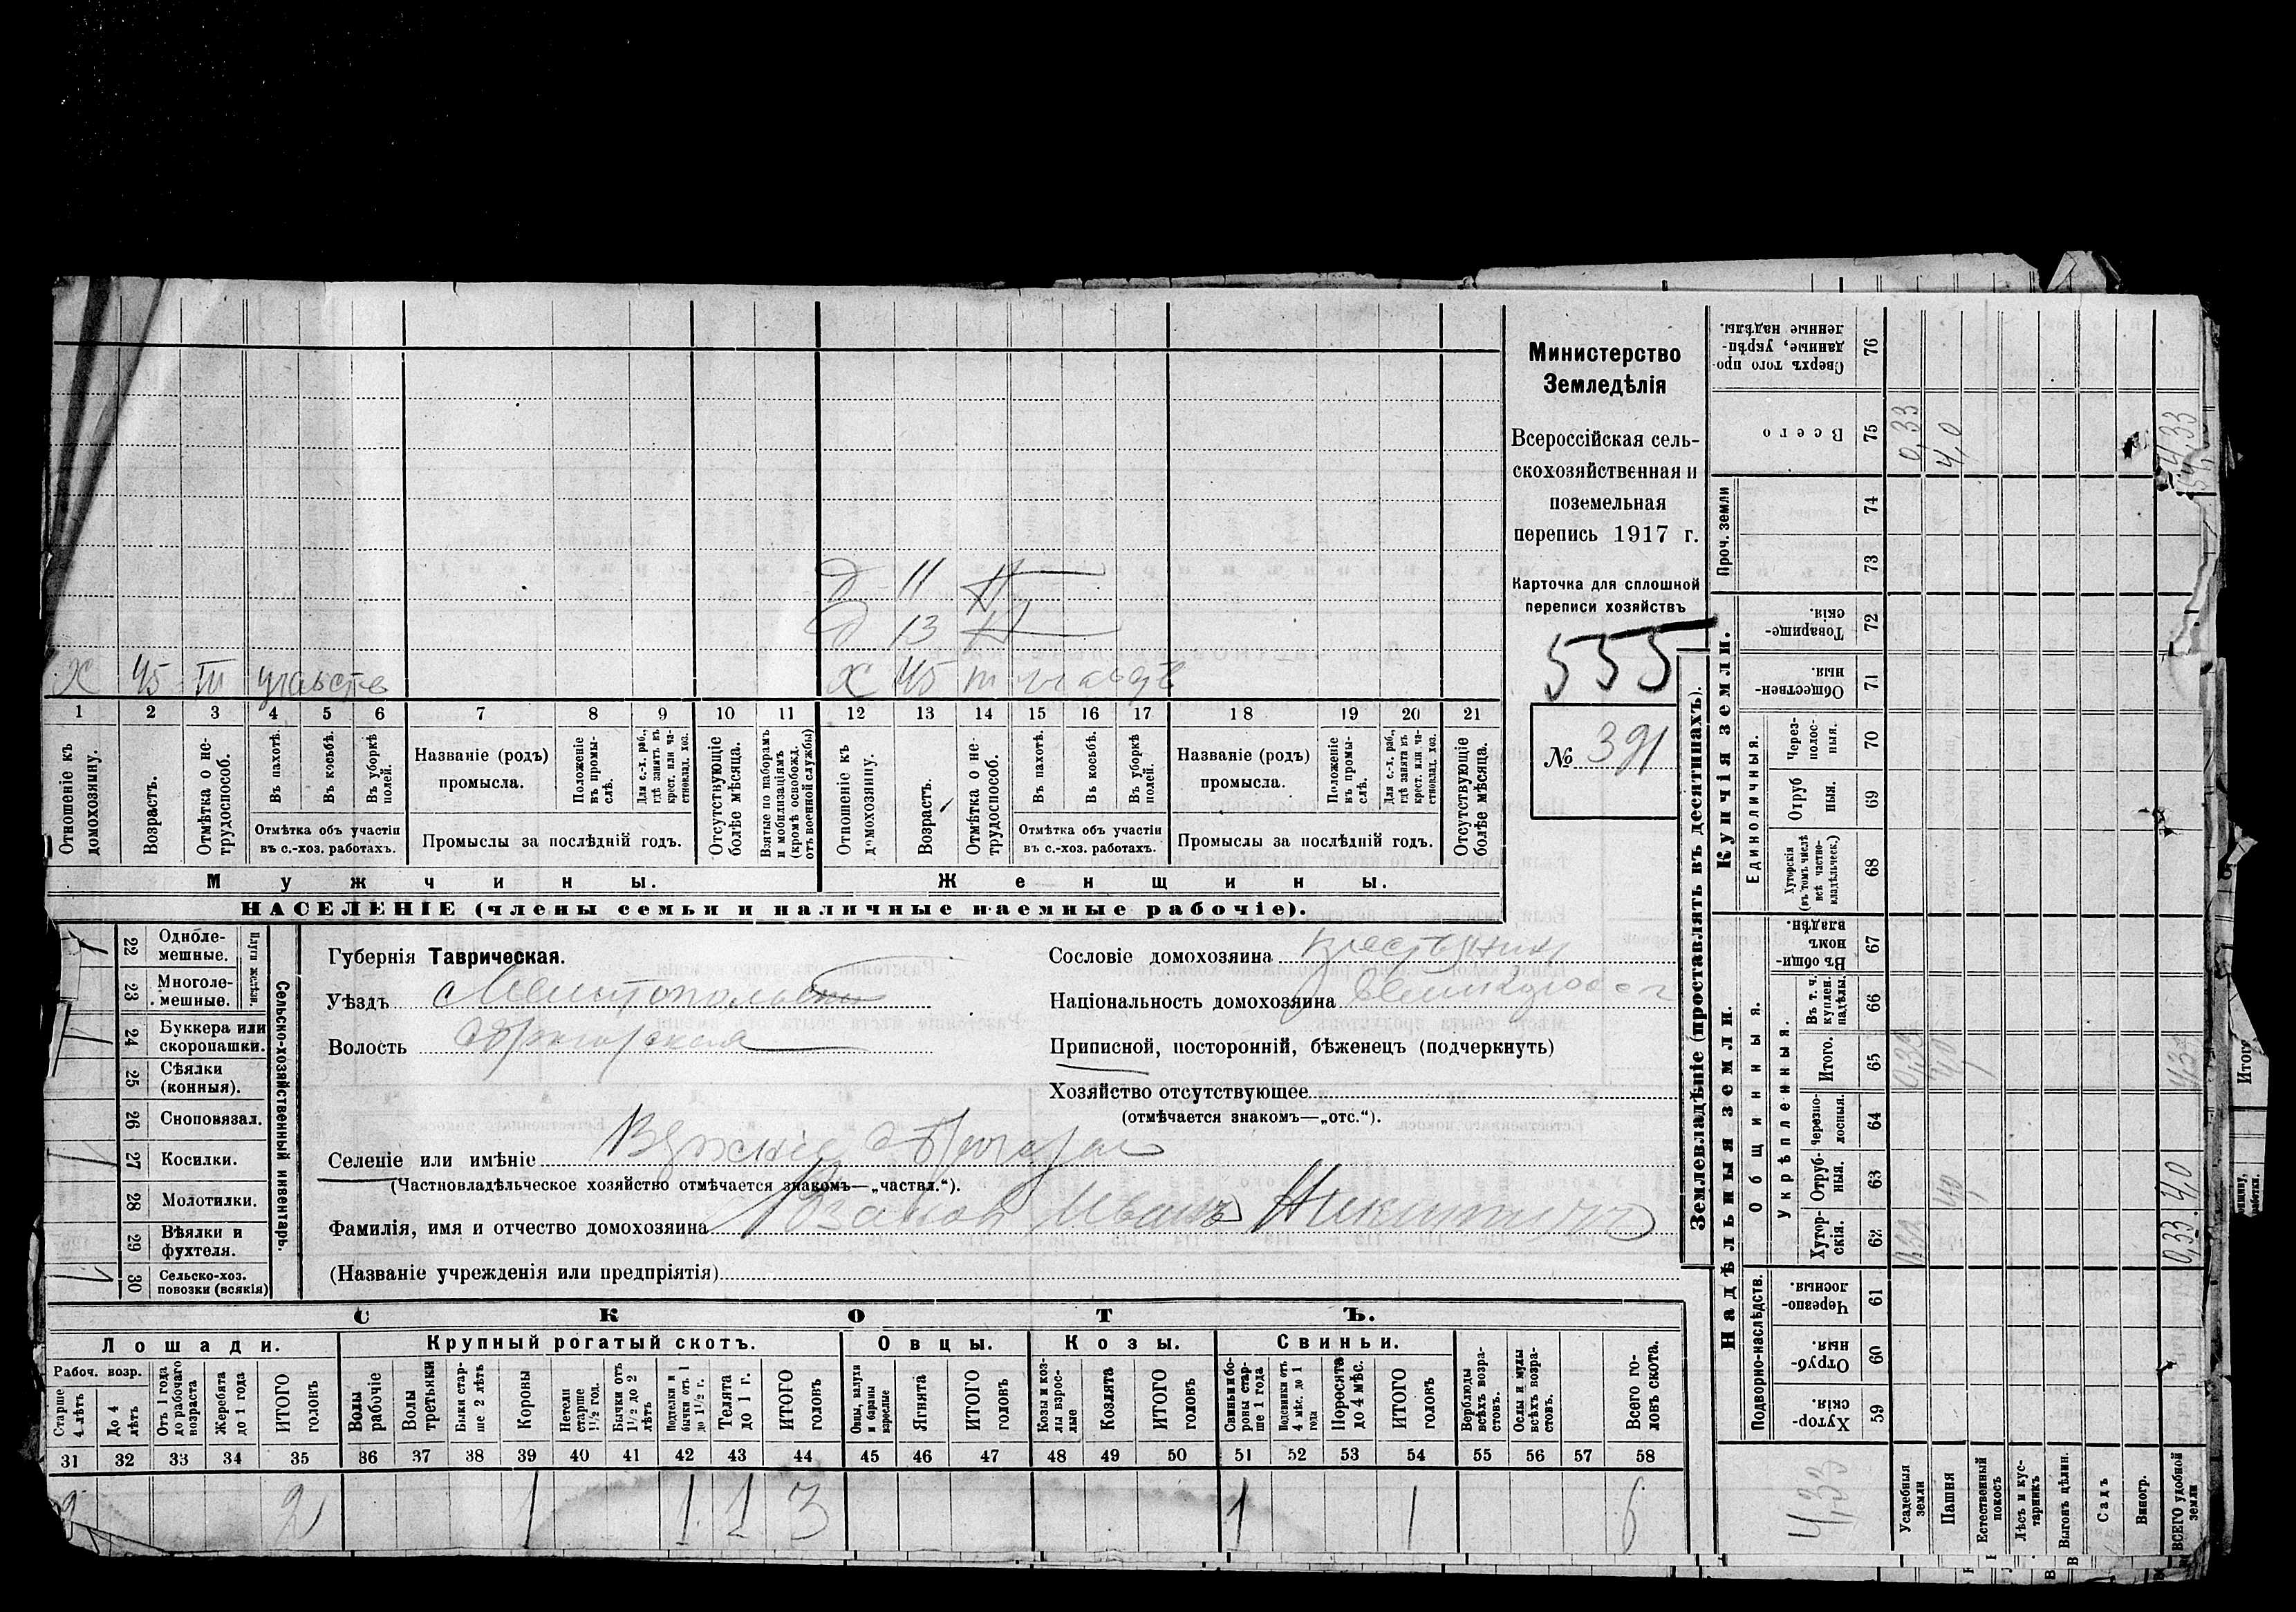 Министерство
Земледѣлія
Всероссійская сель-
скохозяйственная и
поземельная
перепись 1917 г.
Карточка для сплошной
переписи хозяйствъ
555
№ 391
д 11 н
д 13 н
х 45 т участв х 45 т участв
1 2 3 4 5 6 7 8 9 10 11 12 13 14 15 16 17 18 19 20 21
Отношеніе къ домохозяину.
Возрастъ.
Отмѣтка о не-трудоспособ.
Въ пахотѣ.
Въ косьбѣ.
Въ уборкѣ полей.
Отмѣтка объ участіи въ с.-хоз. работахъ.
Названіе (родъ) промысла.
Положеніе въ промы-слѣ.
Для с.-х. раб., гдѣ занятъ въ крест. или ча-стновлад. хоз.
Промыслы за послѣдній годъ.
Отсутствующіе болѣе мѣсяца.
Взятые по наборамъ и мобилизаціямъ (кромѣ освобожд. отъ военной службы)
Отношеніе къ домохозяину.
Возрастъ.
Отмѣтка о не-трудоспособ.
Въ пахотѣ.
Въ косьбѣ.
Въ уборкѣ полей.
Отмѣтка объ участіи въ с.-хоз. работахъ.
Названіе (родъ) промысла.
Положеніе въ промы-слѣ.
Для с.-х. раб., гдѣ занята въ крест. или ча-стновлад. хоз.
Промыслы за послѣдній годъ.
Отсутствующіе болѣе мѣсяца.
Мужчины. Женщины.
НАСЕЛЕНІЕ (члены семьи и наличные наемные рабочіе).
Сельско-хозяйственный инвентарь.
Плуги желѣзн.
22 Однолемешные. 1
23 Многолемешные.
24 Буккера или скоропашки. 1
25 Сѣялки (конныя).
26 Сноповязал.
27 Косилки. 1
28 Молотилки.
29 Вѣялки и фухтеля.
30 Сельско-хоз. повозки (всякія) 1
Губернія Таврическая.
Уѣздъ Мелитопольскій
Волость
Сословіе домохозяина крестьянин
Національность домохозяина великоросс
Приписной, посторонній, бѣженецъ (подчеркнуть)
Хозяйство отсутствующее
(отмѣчается знакомъ—„отс.“).
Селеніе или имѣніе
(Частновладѣльческое хозяйство отмѣчается знакомъ—„частвл.“).
Фамилія, имя и отчество домохозяина Иванъ Никитичъ
(Названіе учрежденія или предпріятія)
СКОТЪ.
Лошади. Крупный рогатый скотъ. Овцы. Козы. Свиньи.
Рабоч. возр.
Старше 4 лѣтъ
До 4 лѣтъ
Отъ 1 года до рабочаго возраста
Жеребята до 1 года
ИТОГО головъ
Волы рабочіе
Волы третьяки
Быки стар-ше 2 лѣтъ
Коровы
Нетели старше 1½ год.
Бычки отъ 1½ до 2 лѣтъ
Подтелки и бычки отъ 1 до 1½ г.
Телята до 1 г.
ИТОГО головъ
Овцы, валухи и бараны взрослые
Ягнята
ИТОГО головъ
Козы и коз-лы взрос-лые
Козлята
ИТОГО головъ
Свиньи и бо-ровы стар-ше 1 года
Подсвинки отъ 4 мѣс. до 1 года
Поросята до 4 мѣс.
ИТОГО головъ
Верблюды всѣхъ возра-стовъ.
Ослы и мулы всѣхъ возра-стовъ.
Всего го-ловъ скота.
31 32 33 34 35 36 37 38 39 40 41 42 43 44 45 46 47 48 49 50 51 52 53 54 55 56 57 58
2 2 1 1 1 3 1 1 6
Землевладѣніе (проставлять въ десятинахъ).
Надѣльныя земли.
Купчія земли.
Подворно-наслѣдств.
Общинныя.
Укрѣпленныя.
Единоличныя.
Проч. земли
Хутор-скія. 59
Отруб-ныя. 60
Черезпо-лосныя. 61
Хутор-скія. 62
Отруб-ныя. 63
Черезпо-лосныя. 64
Итого. 65
Въ т. ч. куплен. надѣлы. 66
Въ общи-номъ владѣн. 67
Хуторскія (въ томъ числѣ всѣ частно-владѣльческ.) 68
Отруб ныя. 69
Через-полос-ныя. 70
Обществен-ныя. 71
Товарище-скія. 72
73
74
Всего 75
Сверхъ того про-данные, укрѣп-ленные надѣлы. 76
4,33
Усадебныя земли 0,33 0,33 0,33
Пашня 4,0 4,0 4,0
Естественный покосъ
Лѣсъ и кус-тарникъ
Выгонъ цѣлин.
Садъ
Виногр.
ВСЕГО удобной земли 0,33 4,0 4,33 4,33
Итого